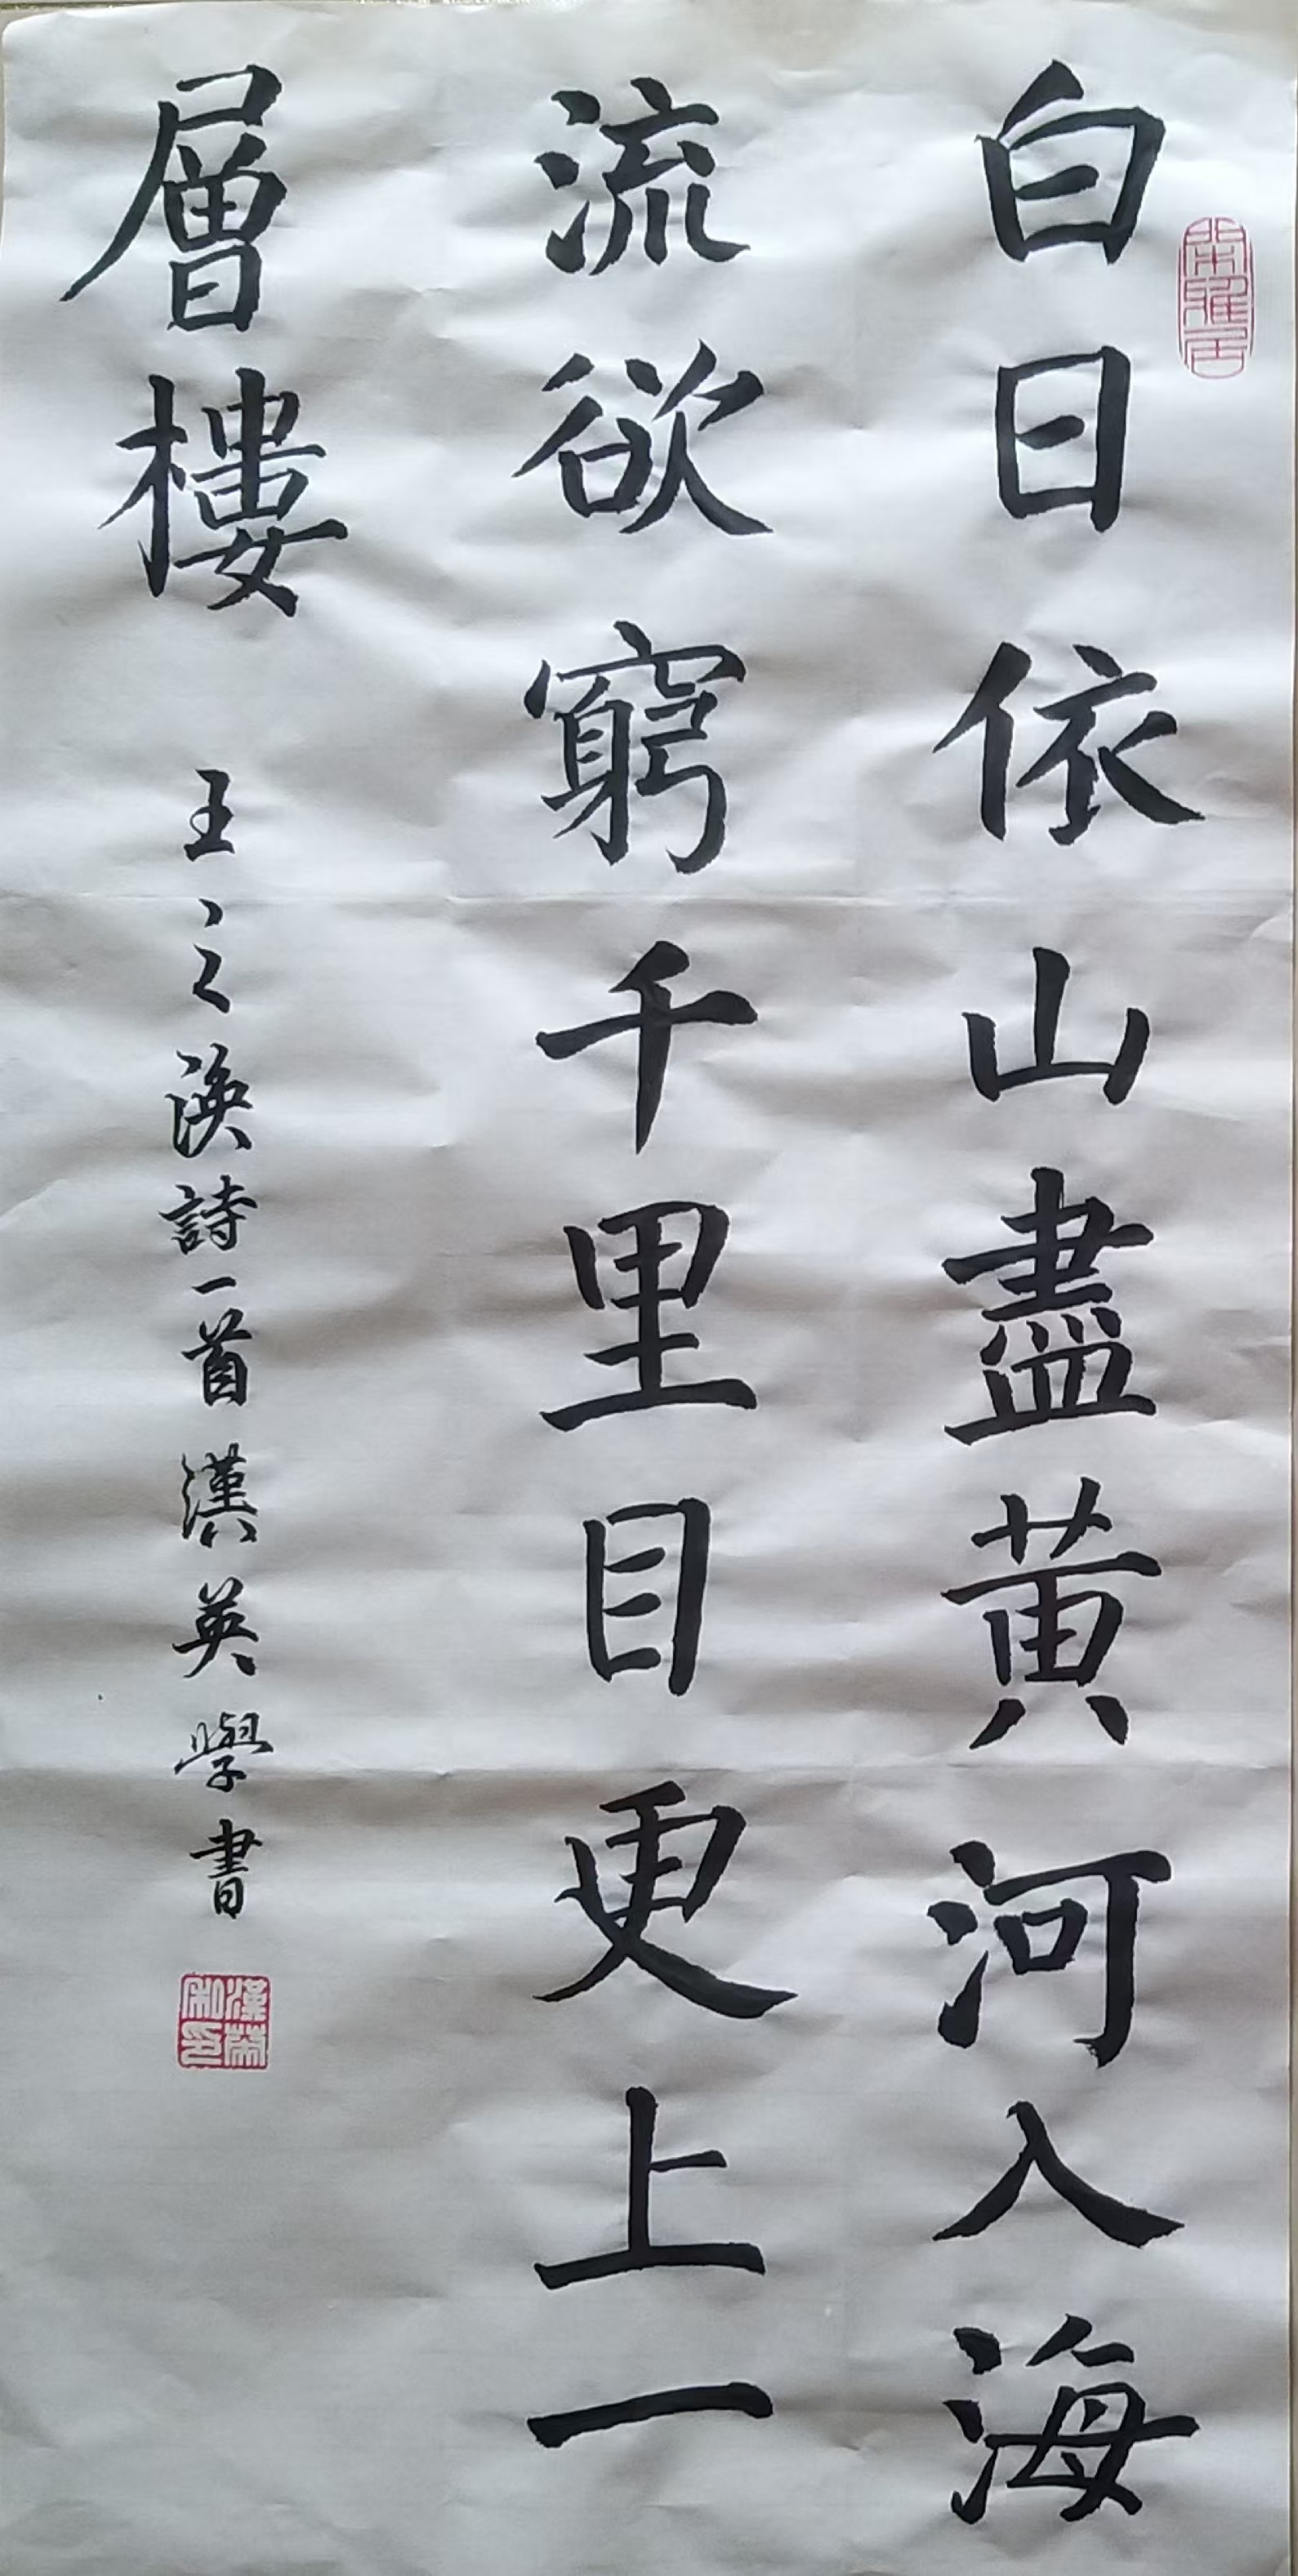 白日依山盡黃河入海
流欲窮千里目更上一
層樓
王之渙詩一首漢英學書